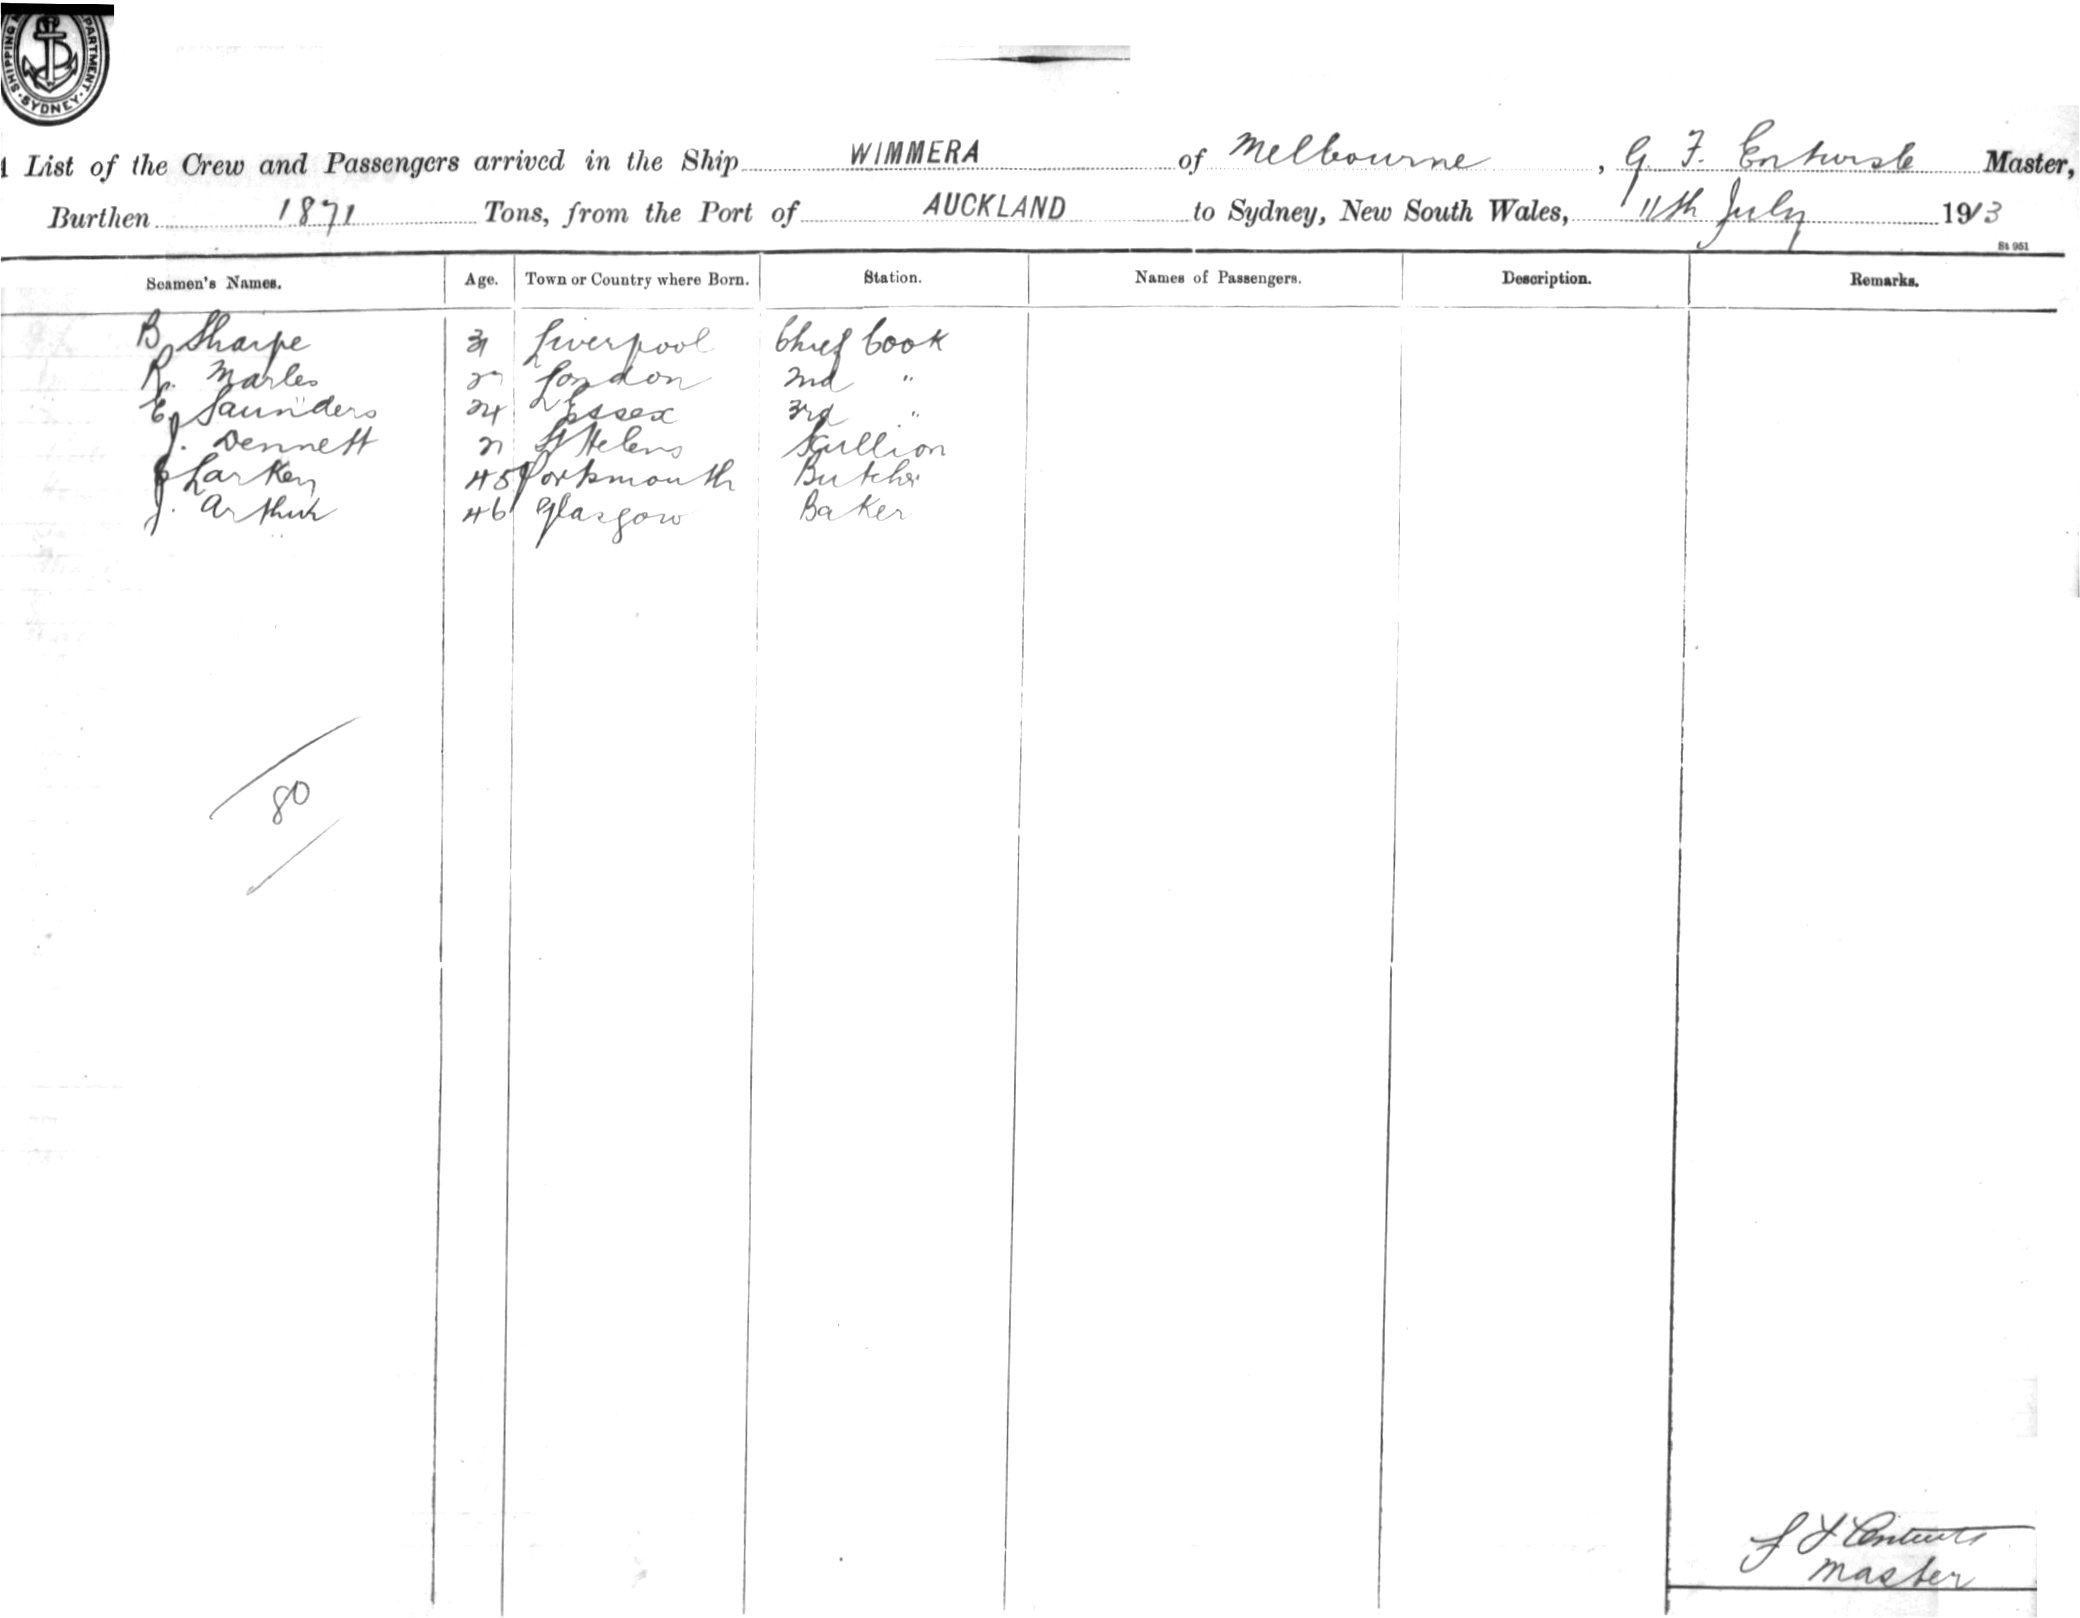 SHIPPING DEPARTMENT SYDNEY
List of the Crew and Passengers arrived in the Ship WIMMERA of Melbourne, G. F. Entwisle Master,
Burthen 1871 Tons, from the Port of AUCKLAND to Sydney, New South Wales, 11th July 1913
St 951
Seamen's Names. Age. Town or Country where Born. Station. Names of Passengers. Description. Remarks.
B Sharpe 31 Liverpool Chief Cook
R. Marles London 2nd "
E Saunders 24 Essex 3rd "
J. Dennett 21 St Helens Scullion
Larken 45 Portsmouth Butcher
J. Arthur 46 Glasgow Baker
80
Master